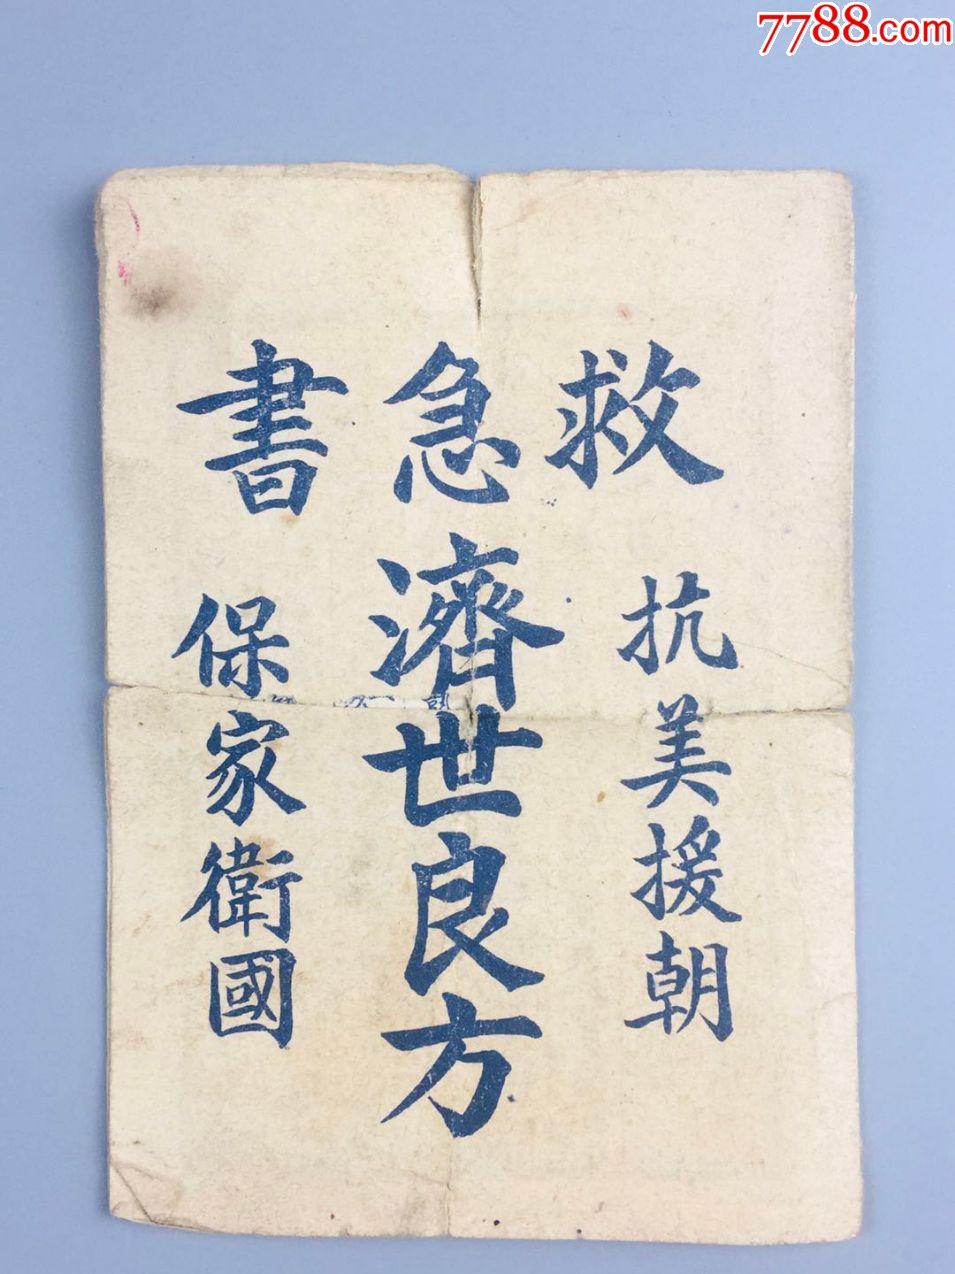 7788.com
救急書
抗美援朝
濟世良方
保家衛國